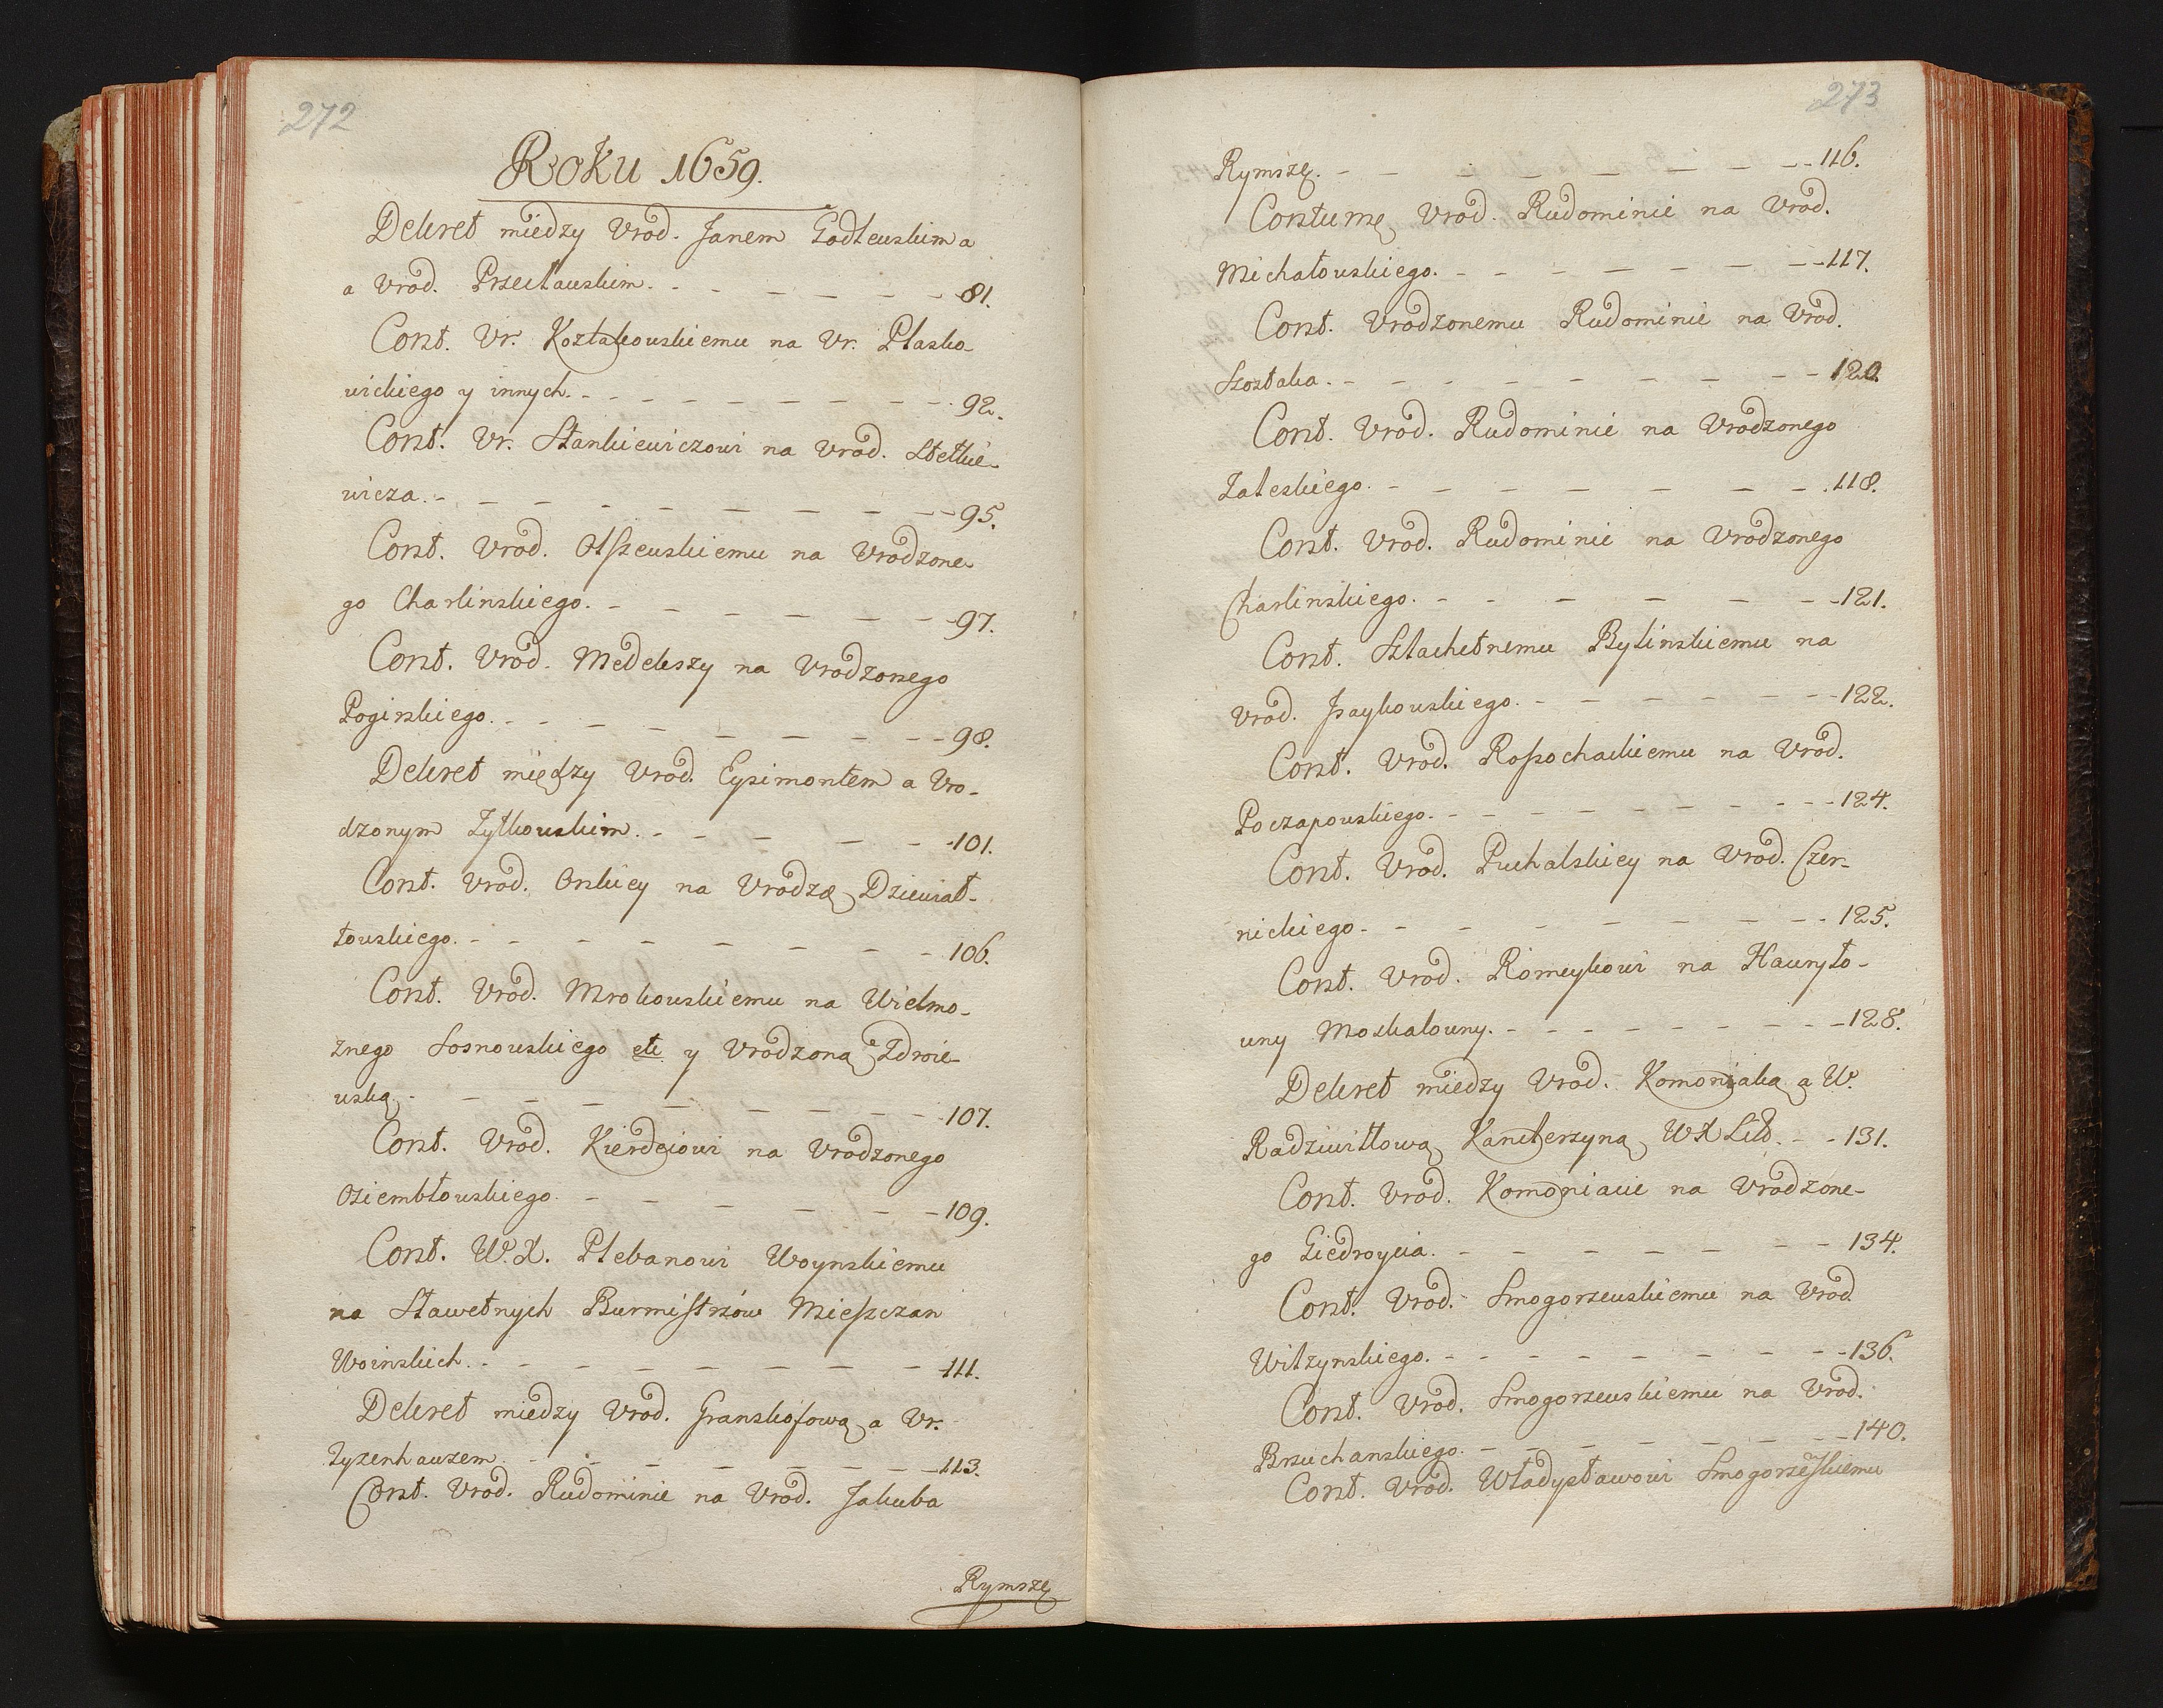 272
Roku 1659.
Dekret miedzy Vrod. Janem Godlewskim a
a Vrod. Przecławskim. - - - - - - 81.
Const. Vr. Kozłakowskiemu na Vr. Płasko-
wickiego y innych. - - - - - - - - 92.
Const. Vr. Stankiewiczowi na Vrod. Stetkie-
wicza. - - - - - - - - - 95.
Const. Vrod. Olszewskiemu na Vrodzone-
go Charlinskiego. - - - - - - - 97.
Const. Vrod. Medekszy na Vrodzonego
Pogirskiego. - - - - - - - - 98.
Dekret między Vrod. Eysimontem a Vro-
dzonym Zytkowskim. - - - - - 101.
Const. Vrod. Onskiey na Vrodzę Dziewiał-
towskiego. - - - - - - - - 106.
Const. Vrod. Mrokowskiemu na Wielmo-
znego Sosnowskiego etc y Vrodzoną Zdroie-
wską. - - - - - - - - - 107.
Const. Vrod. Kierdeiowi na Vrodzonego
Oziembłowskiego. - - - - - - - 109.
Const. W.X. Plebanowi Woynskiemu
na Sławetnych Burmistrzów Mieszczan
Woinskich. - - - - - - - - 111.
Dekret miedzy Vrod. Granskofową a Vr.
Zyzenhauzem. - - - - - - - 113.
Const. Vrod. Rudominie na Vrod. Jakuba
Rymszę
273
Rymszę. - - - - - - - - 116.
Constumę Vrod. Rudominie na Vrod.
Michałowskiego. - - - - - - - 117.
Const. Vrodzonemu Rudominie na Vrod.
Szostaka. - - - - - - - - - 120.
Const. Vrod. Rudominie na Vrodzonego
Zaleskiego. - - - - - - - 118.
Const. Vrod. Rudominie na Vrodzonego
Charlinskiego. - - - - - - - 121.
Const. Szlachetnemu Bylinskiemu na
Vrod. Isaykowskiego. - - - - - - 122.
Const. Vrod. Rossochackiemu na Vrod.
Poczapowskiego. - - - - - - - - 124.
Const. Vrod. Puchalskiey na Vrod. Czer-
nickiego. - - - - - - - - 125.
Const. Vrod. Romeykowi na Hawryło-
wny Moskalowny. - - - - - - - - 128.
Dekret miedzy Vrod. Komoniaką a W.
Radziwiłłową Kanclerzyną WXLitt. - - 131.
Const. Vrod. Komoniacie na Vrodzone-
go Giedroycia. - - - - - - - 134.
Const. Vrod. Smogorzewskiemu na Vrod.
Wilzynskiego. - - - - - - - - 136.
Const. Vrod. Smogorzewskiemu na Vrod.
Brzuchanskiego. - - - - - - - - 140.
Const. Vrod. Władysławowi Smogorzewskiemu